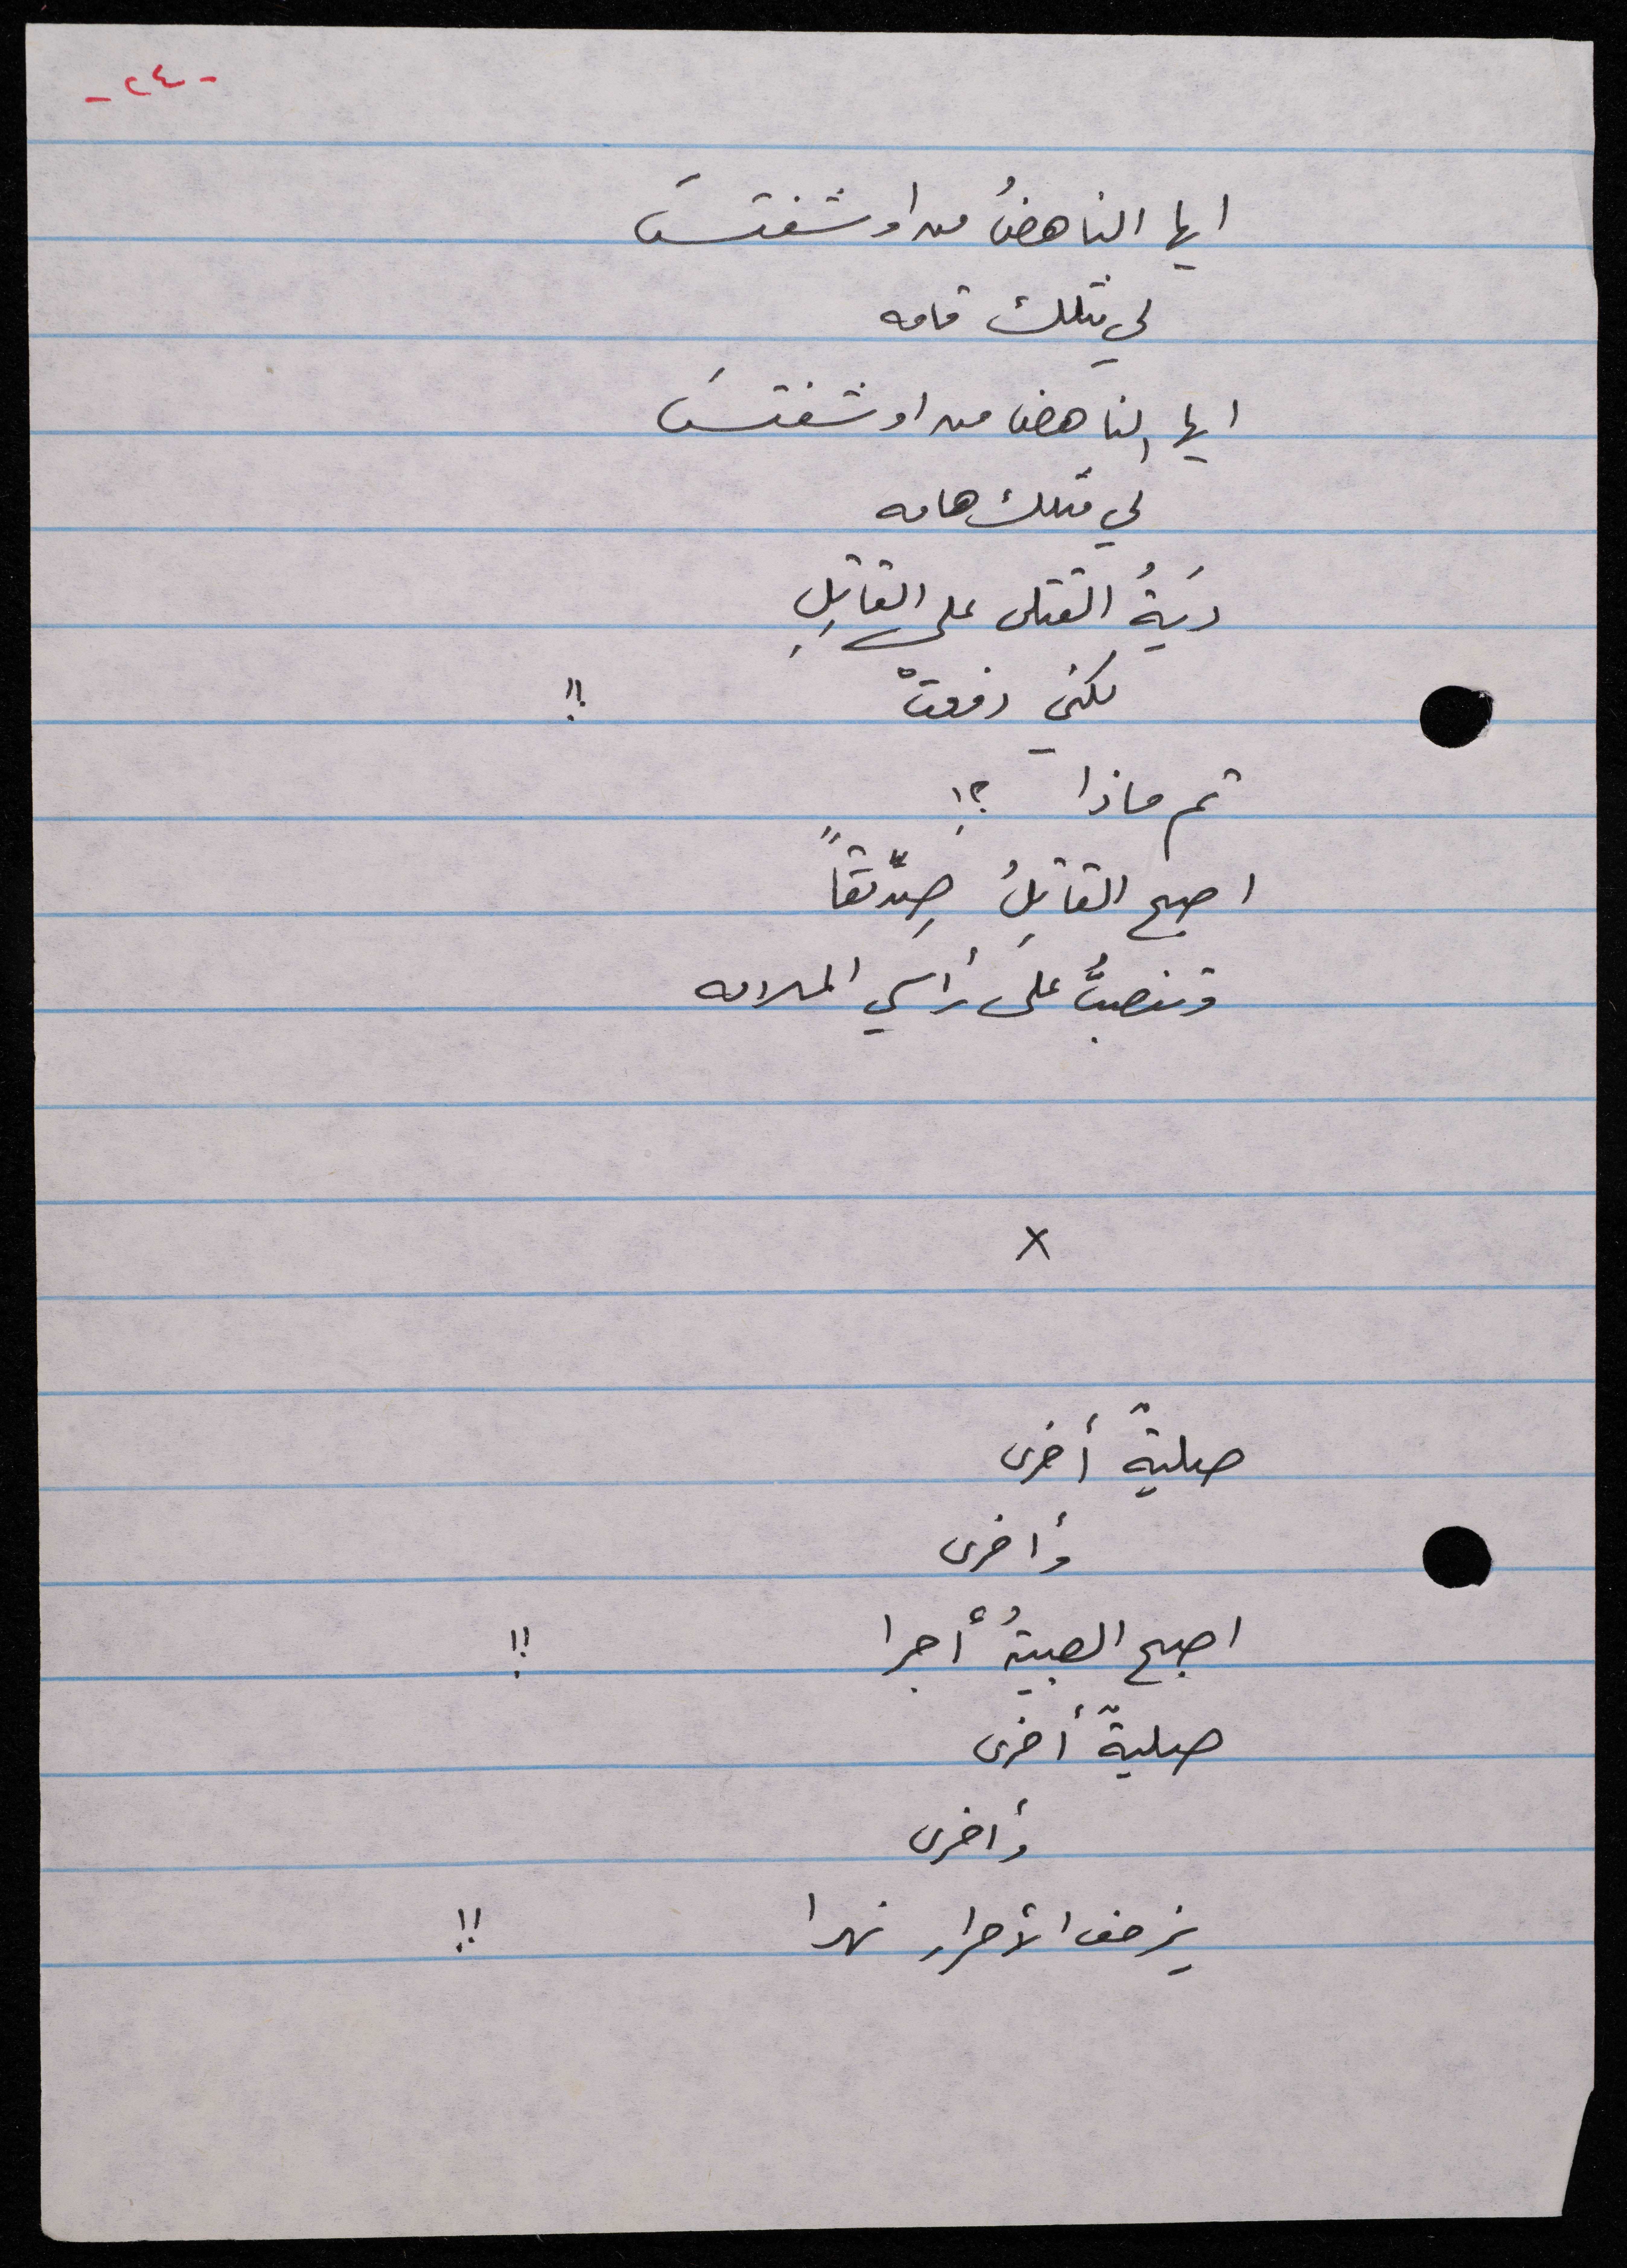 - ٢٤ -
ايها الناهضُ من اوشفتسَ
لي مثلك قامه
ايها الناهض من اوشفتسَ
لي مثلك هامه
ديَةُ القتلى على القاتِلِ
لكني دفعتْ !!
ثم ماذا ؟!
اصبح القاتِلُ صِدّيقاً
وتنصبُّ على رأسي الملامه
x
صليةٌ أخرى
وأخرى
اصبح الصبيةُ أجرا !!
صليةٌ أخرى
وأخرى
يزحف الأحرار نهرا !!